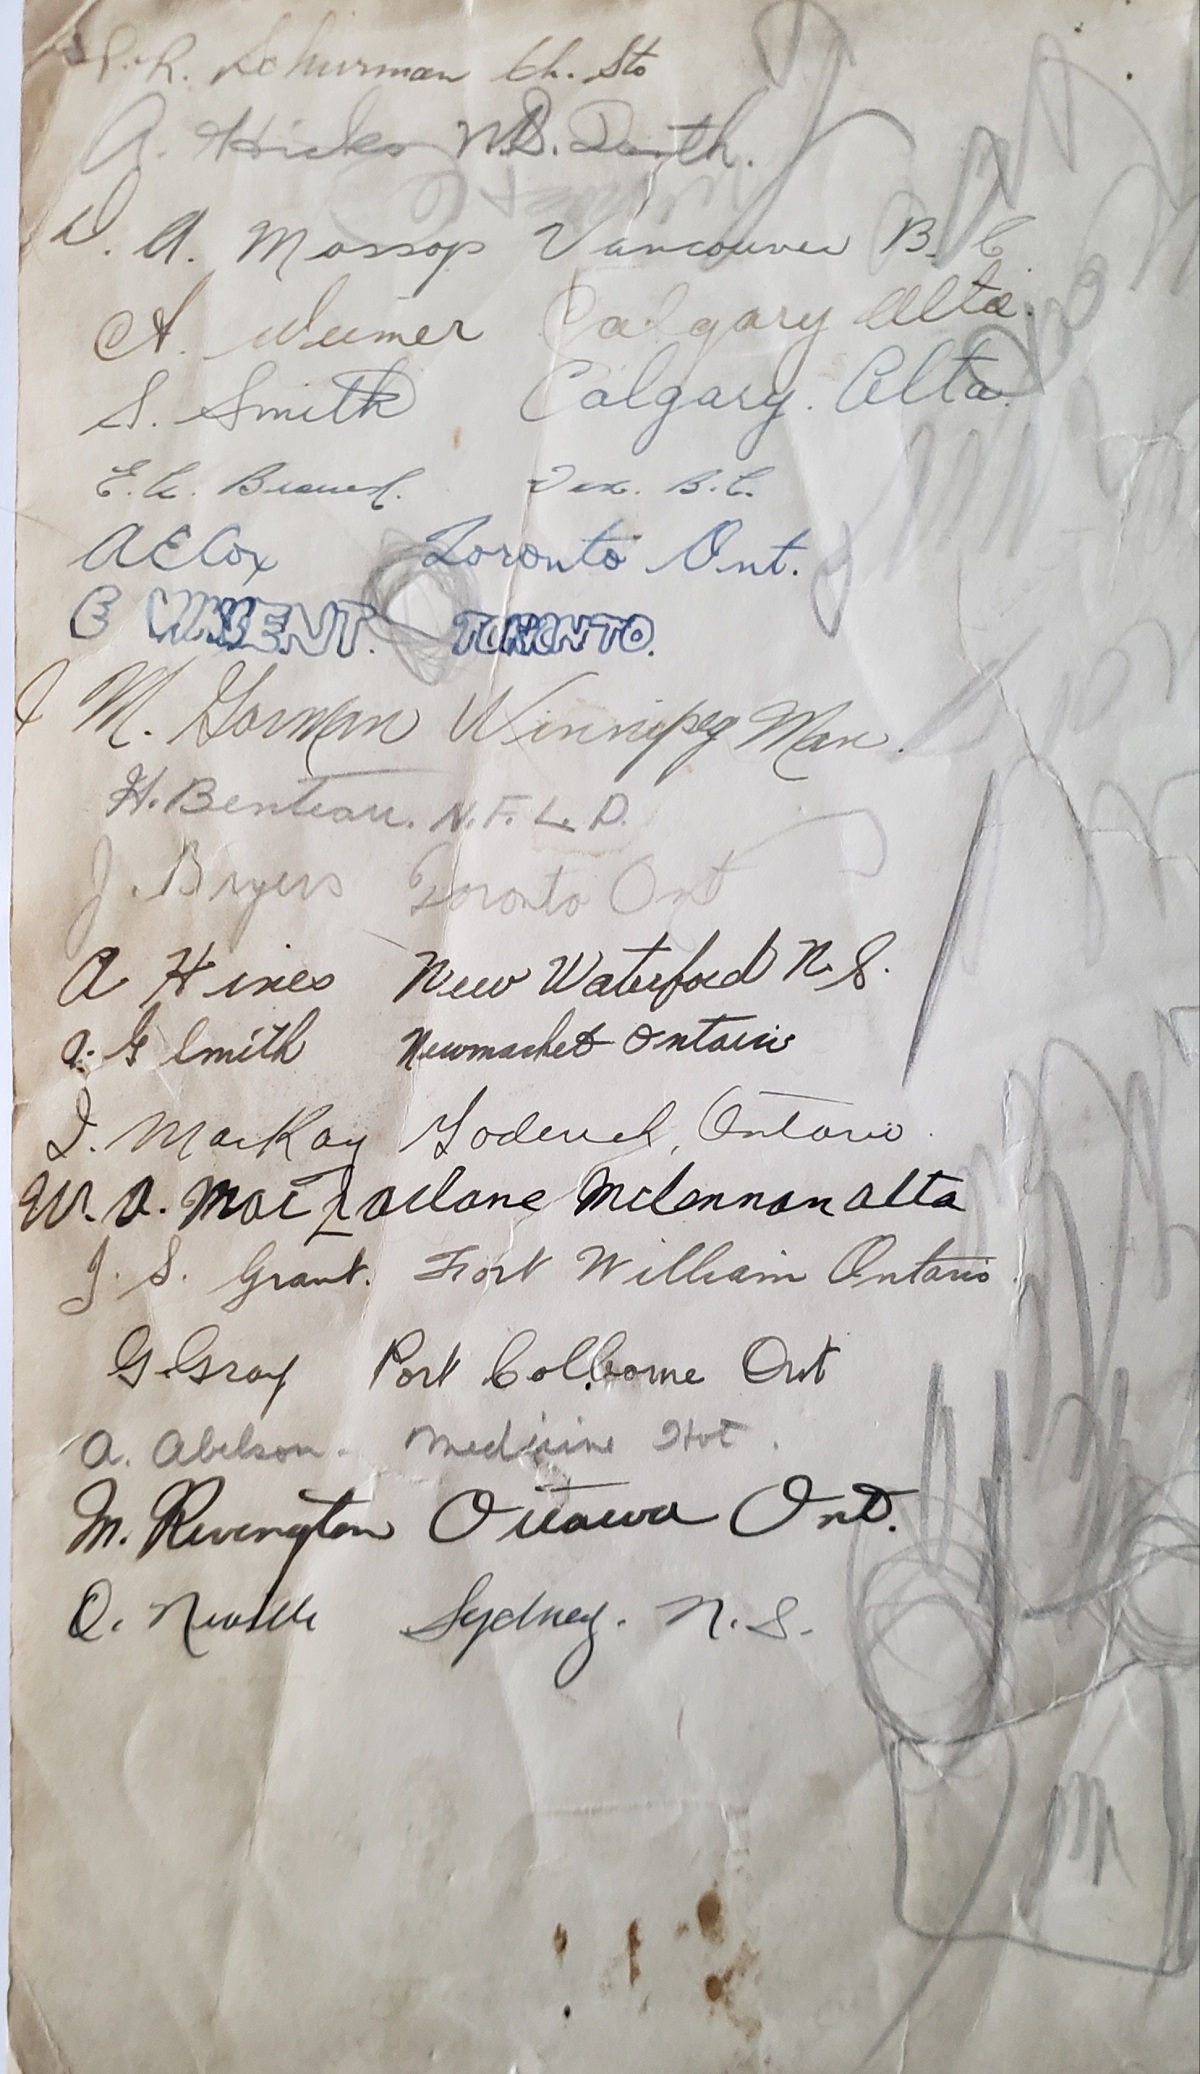 R. Schurman Ch. Sto
A. Hicks
D. A. Mossop Vancouver B. C.
A. Weimer Calgary Alta.
S. Smith Calgary. Alta.
B.C.
A E Cox Toronto Ont.
E VINSENT. TORONTO.
J M. Gorman Winnipeg Man.
H. Benteau. N.F.L.D.
J. Bryers Toronto Ont
A Hines New Waterford N.S.
A. G Smith Newmarket Ontario
I. MacKay Goderich, Ontario.
W. A. MacFarlane McLennan Alta
J. S. Grant. Fort William Ontario
G. Gray Port Colborne Ont
A. Abelson. Medicine Hat.
M. Rivington Ottawa Ont.
O. Neville Sydney. N.S.